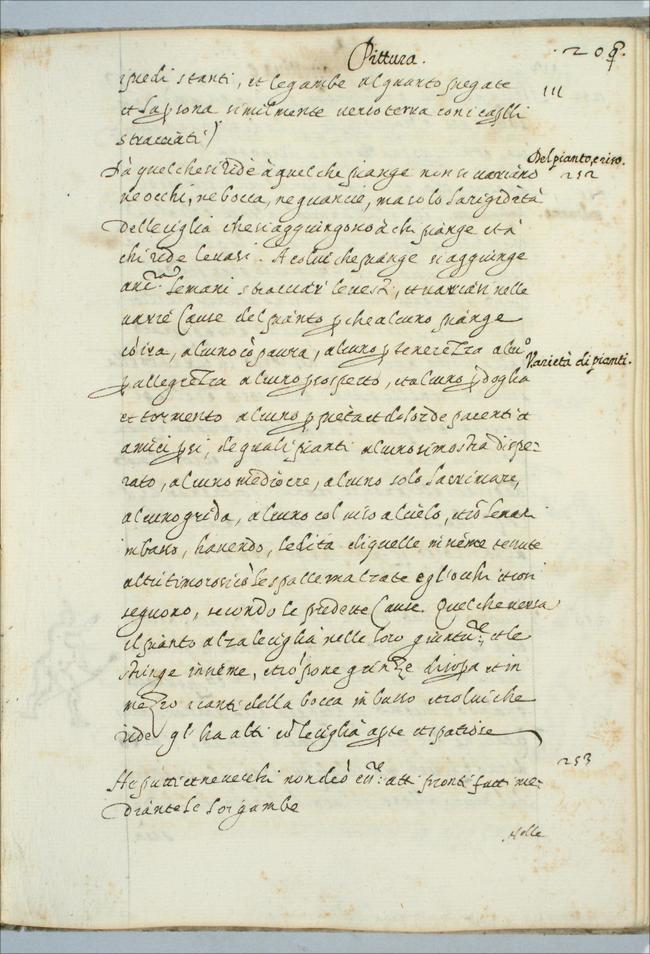 Pittura.
209.
111
i piedi stanti, et le gambe alquanto piegate
et la psona similmente verso terra con i caplli
stracciati)
Del pianto, e riso.
252
Dà quel che si ride à quel che piange non si variano
ne occhi, ne bocca, ne guancie, ma solo la rigidità
delle ciglia che si aggiungono à chi piange et à
chi ride levasi. A colui che piange si aggiunge
anc.ª le mani stracciar le vesti, et variar nelle
varie Cause del pianto p che alcuno piange
cò ira, alcuno cò paura, alcuno p tenerezza alcu.º
Varietà di pianti.
p allegrezza alcuno p sospetto, et alcuno p doglia
et tormento alcuno p pieta et dolor de parenti et
amici psi, de quali pianti alcuno si mostra dispe-
rato, alcuno mediocre, alcuno solo lacrimare,
alcuno grida, alcuno col viso al cielo, et cò le mani
in basso, havendo, le dita di quelle insieme tenute
altri timorosi cò le spalle inalzate e gl'occhi et così
seguono, secondo le predette Cause. Quel che versa
il pianto alza le ciglia nelle loro giunture, et le
stringe insieme, et còpone grinze di sopa et in
mezzo i canti della bocca in basso et colui che
ride gl'ha alti et le ciglia apte et spatiose
253
A i putti et ne vecchi non deò ess.re atti pronti fatti me-
diante le lor gambe
Nelle